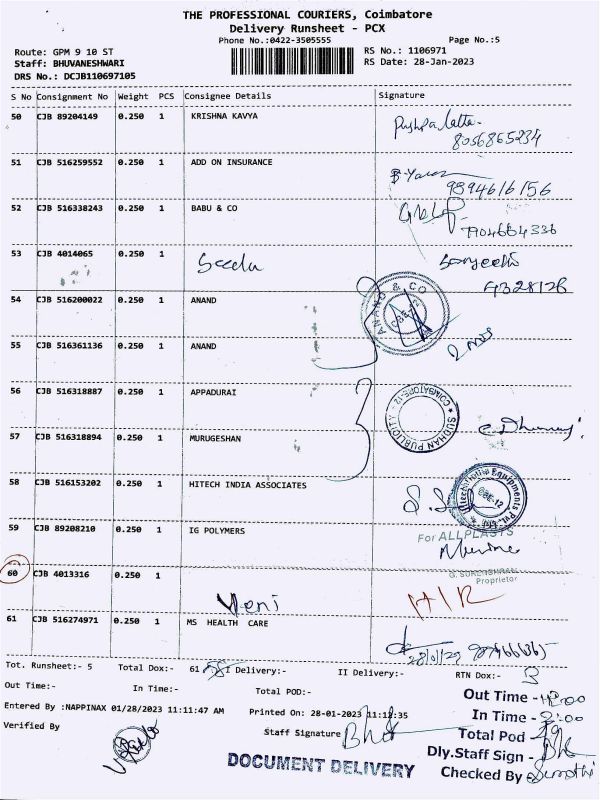 THE PROFESSIONAL COURIERS, Coimbatore
Delivery Runsheet - PCX
Phone No.:0422-3505555 Page No.:5
Route: GPM 9 10 ST RS No.: 1106971
Staff: BHUVANESHWARI RS Date: 28-Jan-2023
DRS No.: DCJB110697105
S No Consignment No Weight PCS Consignee Details Signature
50 CJB 89204149 0.250 1 KRISHNA KAVYA
8056865234
51 CJB 516259552 0.250 1 ADD ON INSURANCE
9894616156
52 CJB 516338243 0.250 1 BABU & CO
7904664336
53 CJB 4014065 0.250 1 Seedu
54 CJB 516200022 0.250 1 ANAND
ANAND & CO
CBE-12
55 CJB 516361136 0.250 1 ANAND
56 CJB 516318887 0.250 1 APPADURAI
SUDHAN PUBLICITY COIMBATORE-12
57 CJB 516318894 0.250 1 MURUGESHAN
58 CJB 516153202 0.250 1 HITECH INDIA ASSOCIATES
CBE-12
59 CJB 89208210 0.250 1 IG POLYMERS
For ALLPLASTS
Proprietor
60 CJB 4013316 0.250 1
Veni
61 CJB 516274971 0.250 1 MS HEALTH CARE
Tot. Runsheet:- 5 Total Dox:- 61 I Delivery:- II Delivery:- RTN Dox:- 3
Out Time:- In Time:- Total POD:-
Entered By :NAPPINAX 01/28/2023 11:11:47 AM Printed On: 28-01-2023 11:12:35
Verified By Staff Signature
Out Time -
In Time -
Total Pod -
Dly.Staff Sign -
Checked By
DOCUMENT DELIVERY